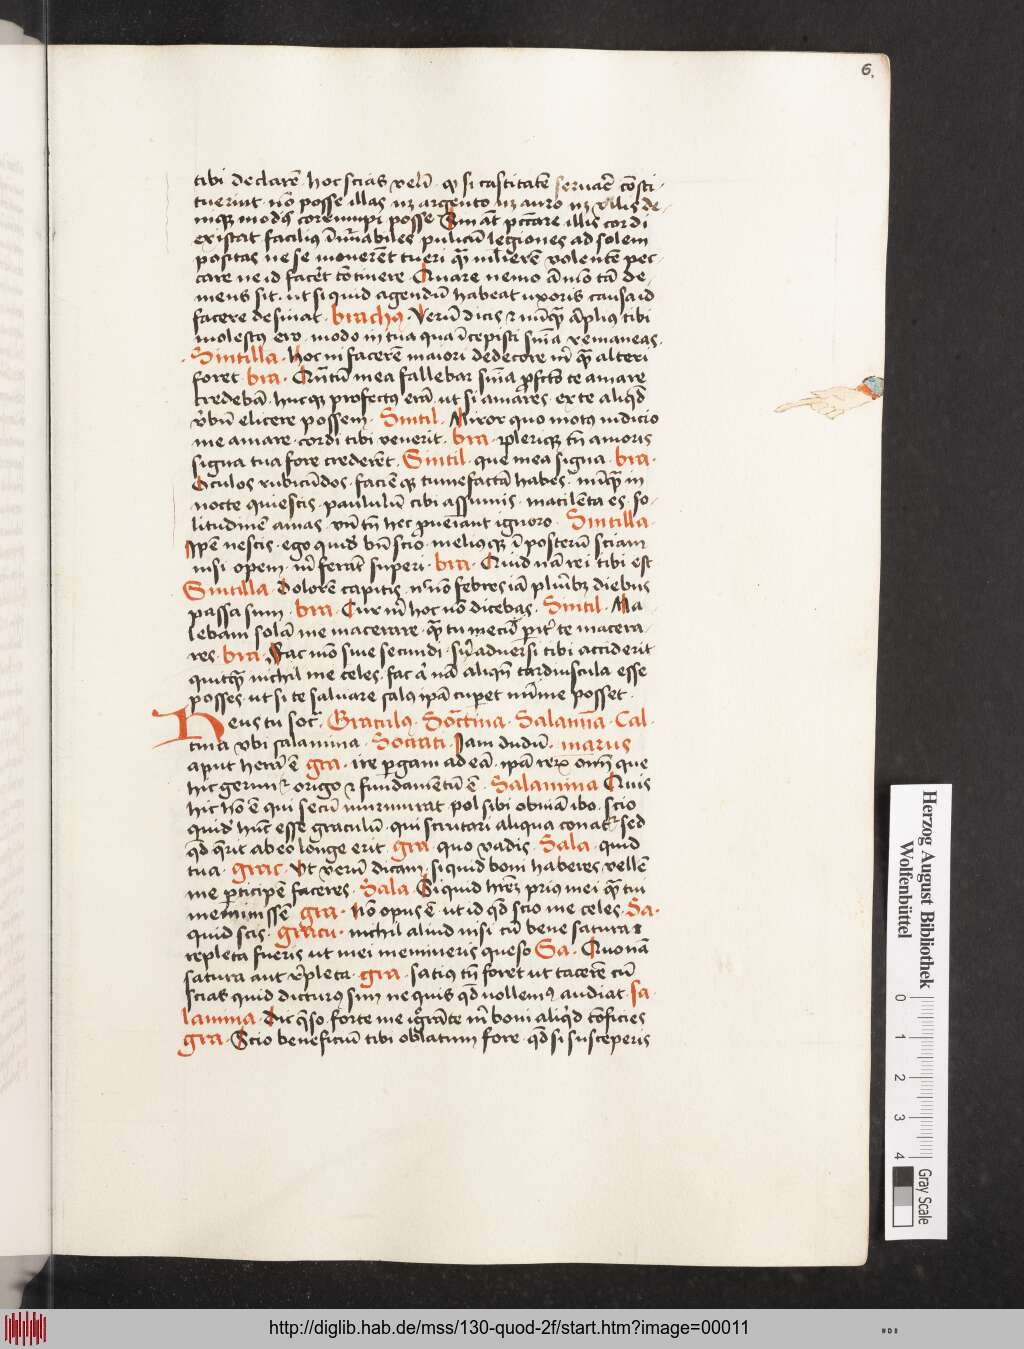 6.
tibi declarē · hoc scias velī · qꝫ si castitatē seruaꝛē cōsti-
tuerint · nō posse illas · nꝫ argento nꝫ auro nꝫ vllis de-
niqꝫ modis corrumpi posse
existat facilius īnūabiles pulicū legiones ad solem
positas ne se mouerēt tueri qꝫ mlīerē volentē pec-
care ne id facēt cōtinere · Quare nemo ām̄o tā de-
mens sit · ut si quid agendū habeat uxoris causa id
facere desinat · brachꝯ · Verū dicis ⁊ nūqꝫ āplius tibi
molestus ero · modo in tua qua īcepisti snīa remaneas ·
Sintilla · hoc ni facerē maiori dedecore m̄ qꝫ alteri
foret · bra · Qn̄tū mea fallebar snīa pfcō te amare
credebā · hucqꝫ profectꝯ erā ut si amares · ex te aliqd
v̄bū elicere possem · Sintil · Miror quo motꝯ iudicio
me amare · cordi tibi venerit · bra · pleriqꝫ tn̄ amoris
signa tua fore crederēt · Sintil · que mea signa · bra ·
Oculos rubicūdos · faciē qꝫ tumefactā habes · nūqꝫ in
nocte quiescis · paululū cibi assumis · macilēta es · so-
litudinē amas · vn̄ tn̄ hec pueniant ignoro · Sintilla ·
Ipē nescis · ego quid vn̄ scio · meliusqꝫ ī posterū sciam
nisi opem · m̄ ferāt superi · bra · Quid nā rei tibi est
Sintilla · Dolorē capitis · nō febres iā plurībꝫ diebus
passa sum · bra · Cur m̄ hoc nō dicebas · Sintil · Ma-
lebam solā me macerare · qꝫ tu mecū pit̄ te macera-
res · bra · Fac mō siue secundi · sī aduersi tibi acciderit
quitqꝫ nichil me celes · fac nā aliqn̄ tardiuscula esse
posses · ut si te saluare salus ipā cuperet mīme posset ·
Heus tu soc̄ · Graculꝯ · Socratina · Salamina · Cal-
tina vbi salamina · Socrati · Jam dudū · marus
aput herā ē gra · ire pergam ad eā · ipā rerꝫ oīm que
hic gerunt̄ origo ⁊ fundamētū ē · Salamina Quis
hic hō ē qui secū murmurat pol sibi obuiā ibo · scio
quid hūc esse graculū · qui scrutari aliqua conat̄ sed
qd qrit ab eo longe erit · gra · quo vadis · Sala · quid
tua · grac · Ut verū dicam · si quid boni haberes · vellē
me pticipē faceres · Sala · Si quid hrēꝫ prius mei qꝫ tui
meminissē gra · nō opus ē · ut id qd scio me celes · Sa ·
quid scis · gracu · nichil aliud nisi cū bene satura
repleta fueris ut mei memineris queso Sa · Quonā
satura aut repleta · gra · satiꝯ tn̄ foret ut tacerē cū
scias quid dicturꝯ sum ne quis qd nollemꝯ audiat · sa-
lamina · Dic qso forte me igrāte m̄ boni aliqd cōficies
gra · Scio beneficiū tibi oblatum fore · qd si susceperis
Herzog August Bibliothek
Wolfenbüttel
0 1 2 3 4
Gray Scale
http://diglib.hab.de/mss/130-quod-2f/start.htm?image=00011